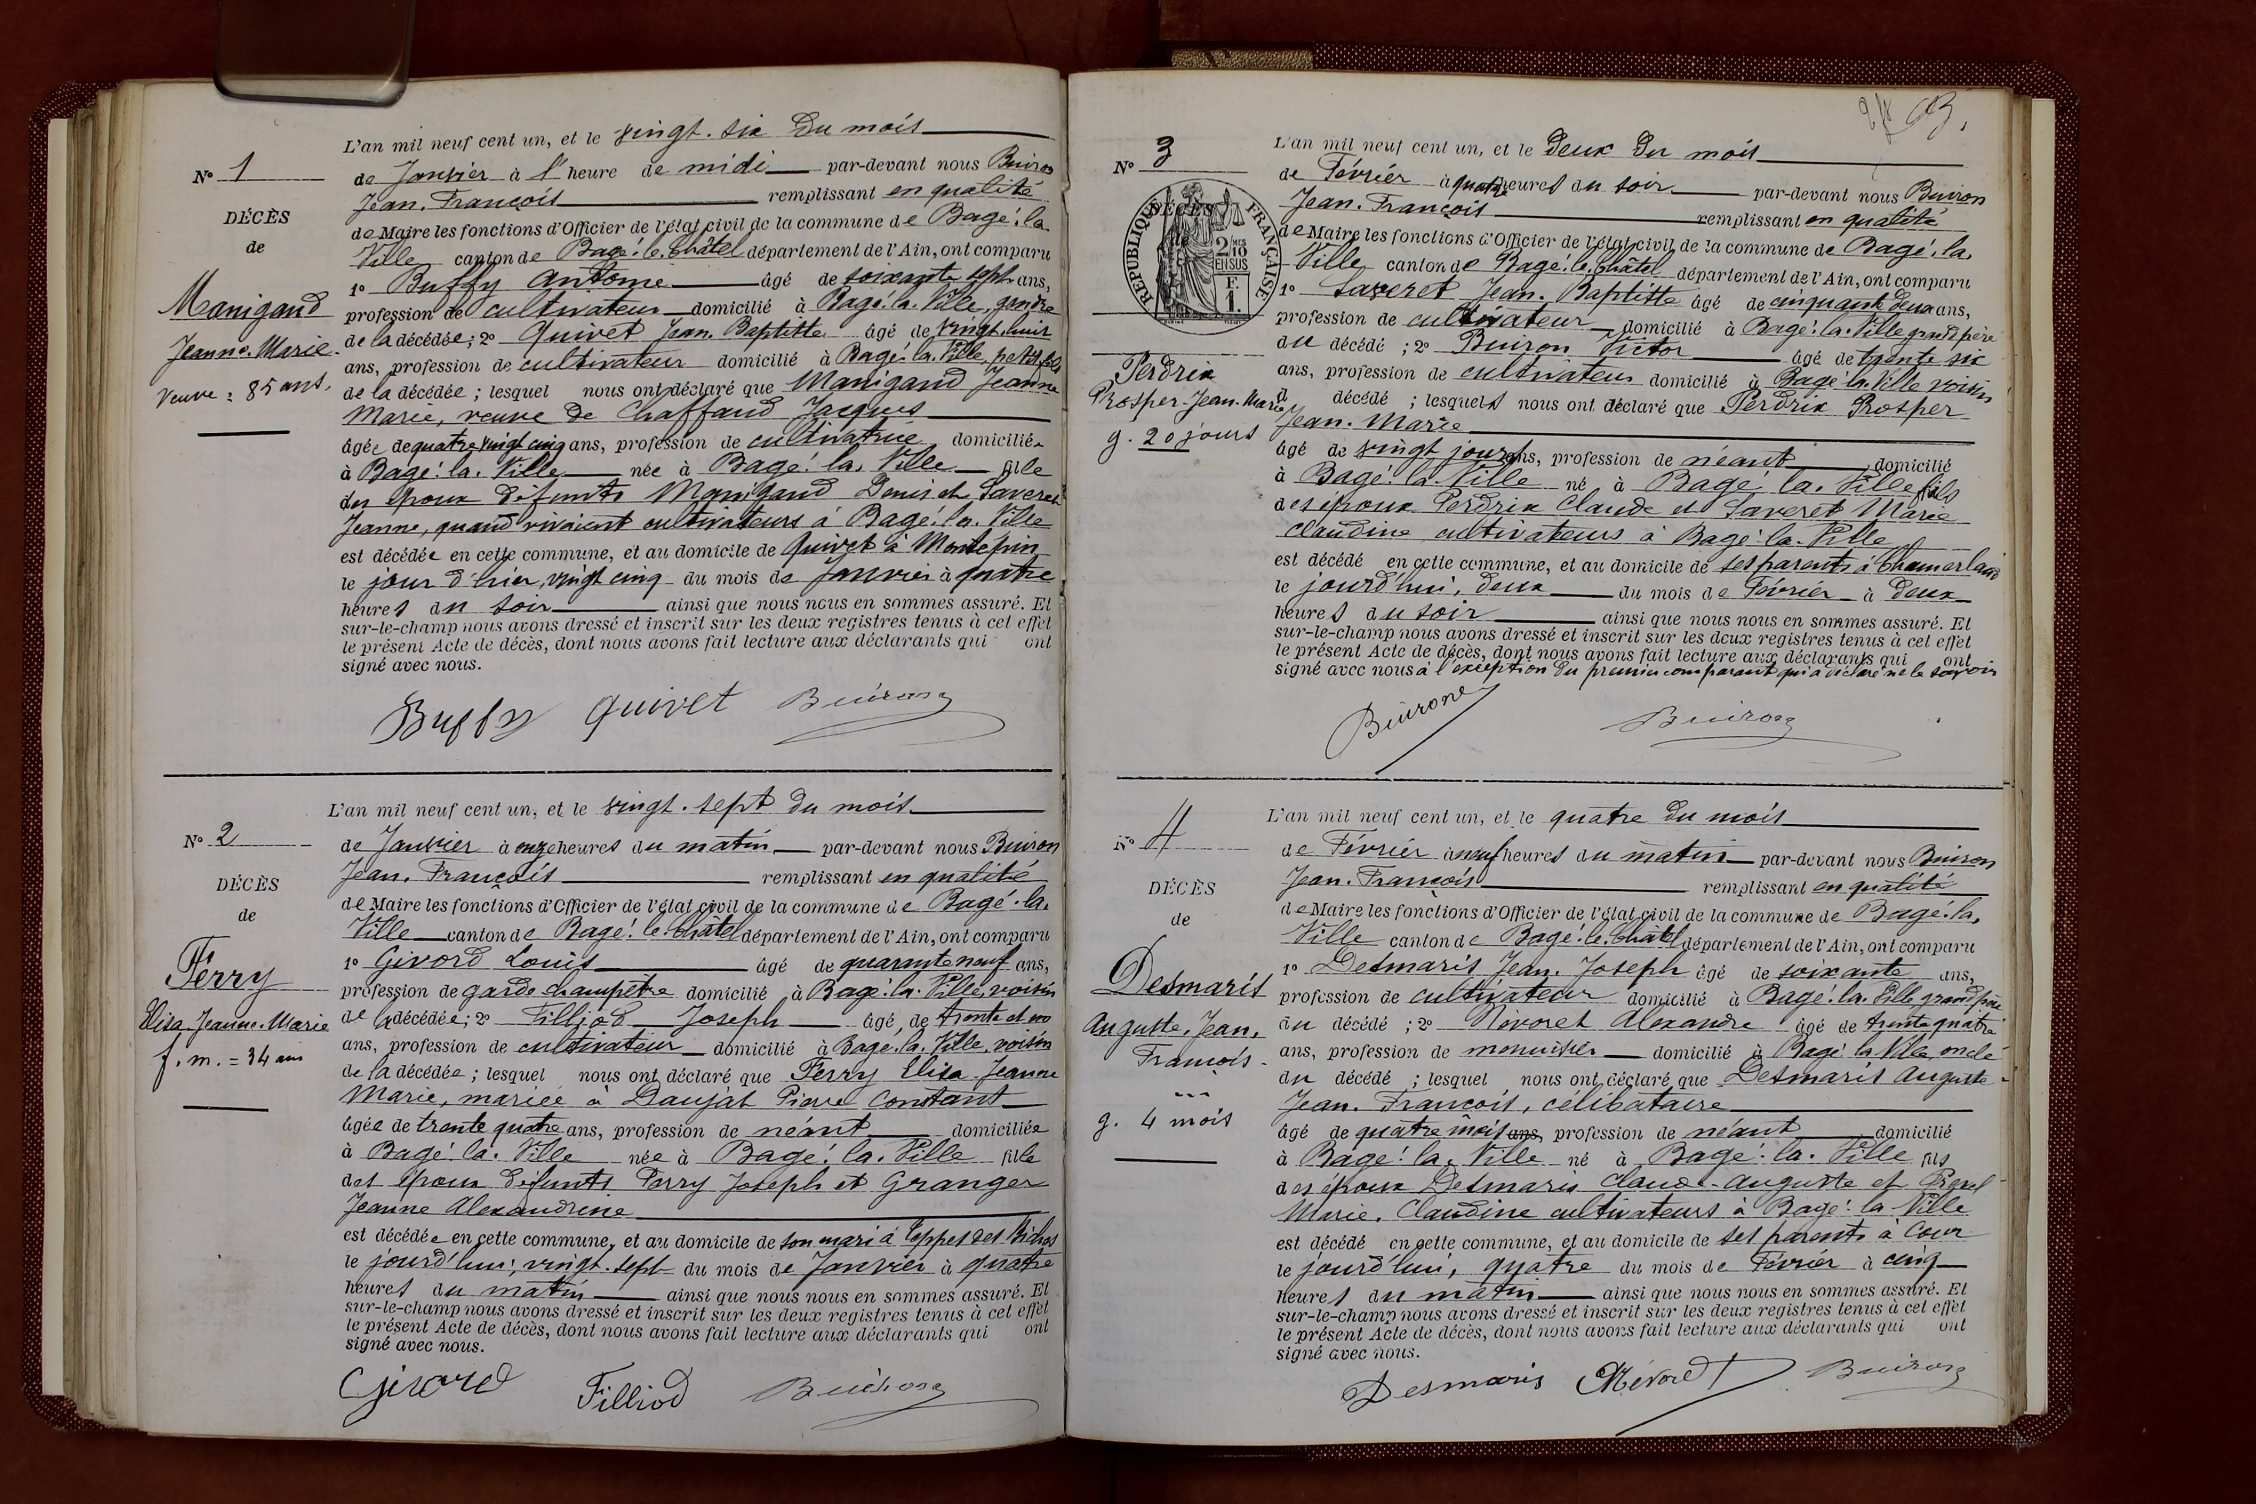 N° 1
DÉCÈS
de
Manigand
Jeanne. Marie.
Veuve = 85 ans.
L'an mil neuf cent un, et le vingt. six du mois
de Janvier à l'heure de midi par-devant nous Buiron
Jean. François remplissant en qualité
de Maire les fonctions d'Officier de l'état civil de la commune de Bagé. la.
Ville canton de Bagé. le. Châtel département de l'Ain, ont comparu
1° Buffy Antoine âgé de soixante sept ans,
profession de cultivateur domicilié à Bagé. la. Ville, gendre
de la décédée; 2° Quivet Jean. Baptiste âgé de vingt. huit
ans, profession de cultivateur domicilié à Bagé. la. Ville, petit fils
de la décédée; lesquel nous ont déclaré que Manigand Jeanne
Marie, veuve de Chaffaud Jacques
âgée de quatre vingt cinq ans, profession de cultivatrice domiciliée
à Bagé. la. Ville née à Bagé. la. Ville fille
des époux défunts Manigand Denis et Saveret
Jeanne, quand vivaient cultivateurs à Bagé. la. Ville
est décédée en cette commune, et au domicile de Quivet à Montépin
le jour d'hier, vingt cinq du mois de Janvier à quatre
heures du soir ainsi que nous nous en sommes assuré. Et
sur-le-champ nous avons dressé et inscrit sur les deux registres tenus à cet effet
le présent Acte de décès, dont nous avons fait lecture aux déclarants qui ont
signé avec nous.
Buffy Quivet Buiron
N° 2
DÉCÈS
de
Ferry
Elisa. Jeanne. Marie
f. m. = 34 ans
L'an mil neuf cent un, et le vingt. sept du mois
de Janvier à onze heures du matin par-devant nous Buiron
Jean. François remplissant en qualité
de Maire les fonctions d'Officier de l'état civil de la commune de Bagé. la.
Ville canton de Bagé. le. Châtel département de l'Ain, ont comparu
1° Givord Louis âgé de quarante neuf ans,
profession de garde champêtre domicilié à Bagé. la. Ville, voisin
de la décédée; 2° Filliod Joseph âgé de trente et un
ans, profession de cultivateur domicilié à Bagé. la. Ville, voisin
de la décédée; lesquel nous ont déclaré que Ferry Elisa Jeanne
Marie, mariée à Daujat Pierre Constant
âgée de trente quatre ans, profession de néant domiciliée
à Bagé. la. Ville née à Bagé. la. Ville fille
des époux défunts Ferry Joseph et Granger
Jeanne Alexandrine
est décédée en cette commune, et au domicile de son mari à Teppes des
le jourd'hui, vingt. sept du mois de Janvier à quatre
heures du matin ainsi que nous nous en sommes assuré. Et
sur-le-champ nous avons dressé et inscrit sur les deux registres tenus à cet effet
le présent Acte de décès, dont nous avons fait lecture aux déclarants qui ont
signé avec nous.
Givord Filliod Buiron
N° 3
DÉCÈS
RÉPUBLIQUE FRANÇAISE
2/10 EN SUS
F. 1.
Perdrix
Prosper-Jean. Marie
g. 20 jours
L'an mil neuf cent un, et le deux du mois
de Février à quatre heures du soir par-devant nous Buiron
Jean. François remplissant en qualité
de Maire les fonctions d'Officier de l'état civil de la commune de Bagé. la.
Ville canton de Bagé. le. Châtel département de l'Ain, ont comparu
1° Saveret Jean. Baptiste âgé de cinquante deux ans,
profession de cultivateur domicilié à Bagé. la. Ville grand père
du décédé; 2° Buiron Victor âgé de trente six
ans, profession de cultivateur domicilié à Bagé. la. Ville voisin
d décédé; lesquels nous ont déclaré que Perdrix Prosper
Jean. Marie
âgé de vingt jours ans, profession de néant domicilié
à Bagé. la. Ville né à Bagé. la. Ville fils
des époux Perdrix Claude et Saveret Marie
Claudine cultivateurs à Bagé. la. Ville
est décédé en cette commune, et au domicile de ses parents à Chamerland
le jourd'hui, deux du mois de Février à deux
heures du soir ainsi que nous nous en sommes assuré. Et
sur-le-champ nous avons dressé et inscrit sur les deux registres tenus à cet effet
le présent Acte de décès, dont nous avons fait lecture aux déclarants qui ont
signé avec nous à l'exception du premier comparant qui a déclaré ne le savoir
Buirone Buiron
N° 4
DÉCÈS
de
Desmaris
Auguste. Jean.
François.
g. 4 mois
L'an mil neuf cent un, et le quatre du mois
de Février à neuf heures du matin par-devant nous Buiron
Jean. François remplissant en qualité
de Maire les fonctions d'Officier de l'état civil de la commune de Bagé. la.
Ville canton de Bagé. le. Châtel département de l'Ain, ont comparu
1° Desmaris Jean. Joseph âgé de soixante ans,
profession de cultivateur domicilié à Bagé. la. Ville grand père
du décédé; 2° Névoret Alexandre âgé de trente quatre
ans, profession de menuisier domicilié à Bagé la Ville, oncle
du décédé; lesquel nous ont déclaré que Desmaris Auguste
Jean. François, célibataire
âgé de quatre mois ans, profession de néant domicilié
à Bagé. la. Ville né à Bagé. la. Ville fils
des époux Desmaris Claude-Auguste et
Marie. Claudine cultivateurs à Bagé. la Ville
est décédé en cette commune, et au domicile de ses parents à Cour
le jourd'hui, quatre du mois de Février à cinq
heures du matin ainsi que nous nous en sommes assuré. Et
sur-le-champ nous avons dressé et inscrit sur les deux registres tenus à cet effet
le présent Acte de décès, dont nous avons fait lecture aux déclarants qui ont
signé avec nous.
Desmaris Névoret Buiron